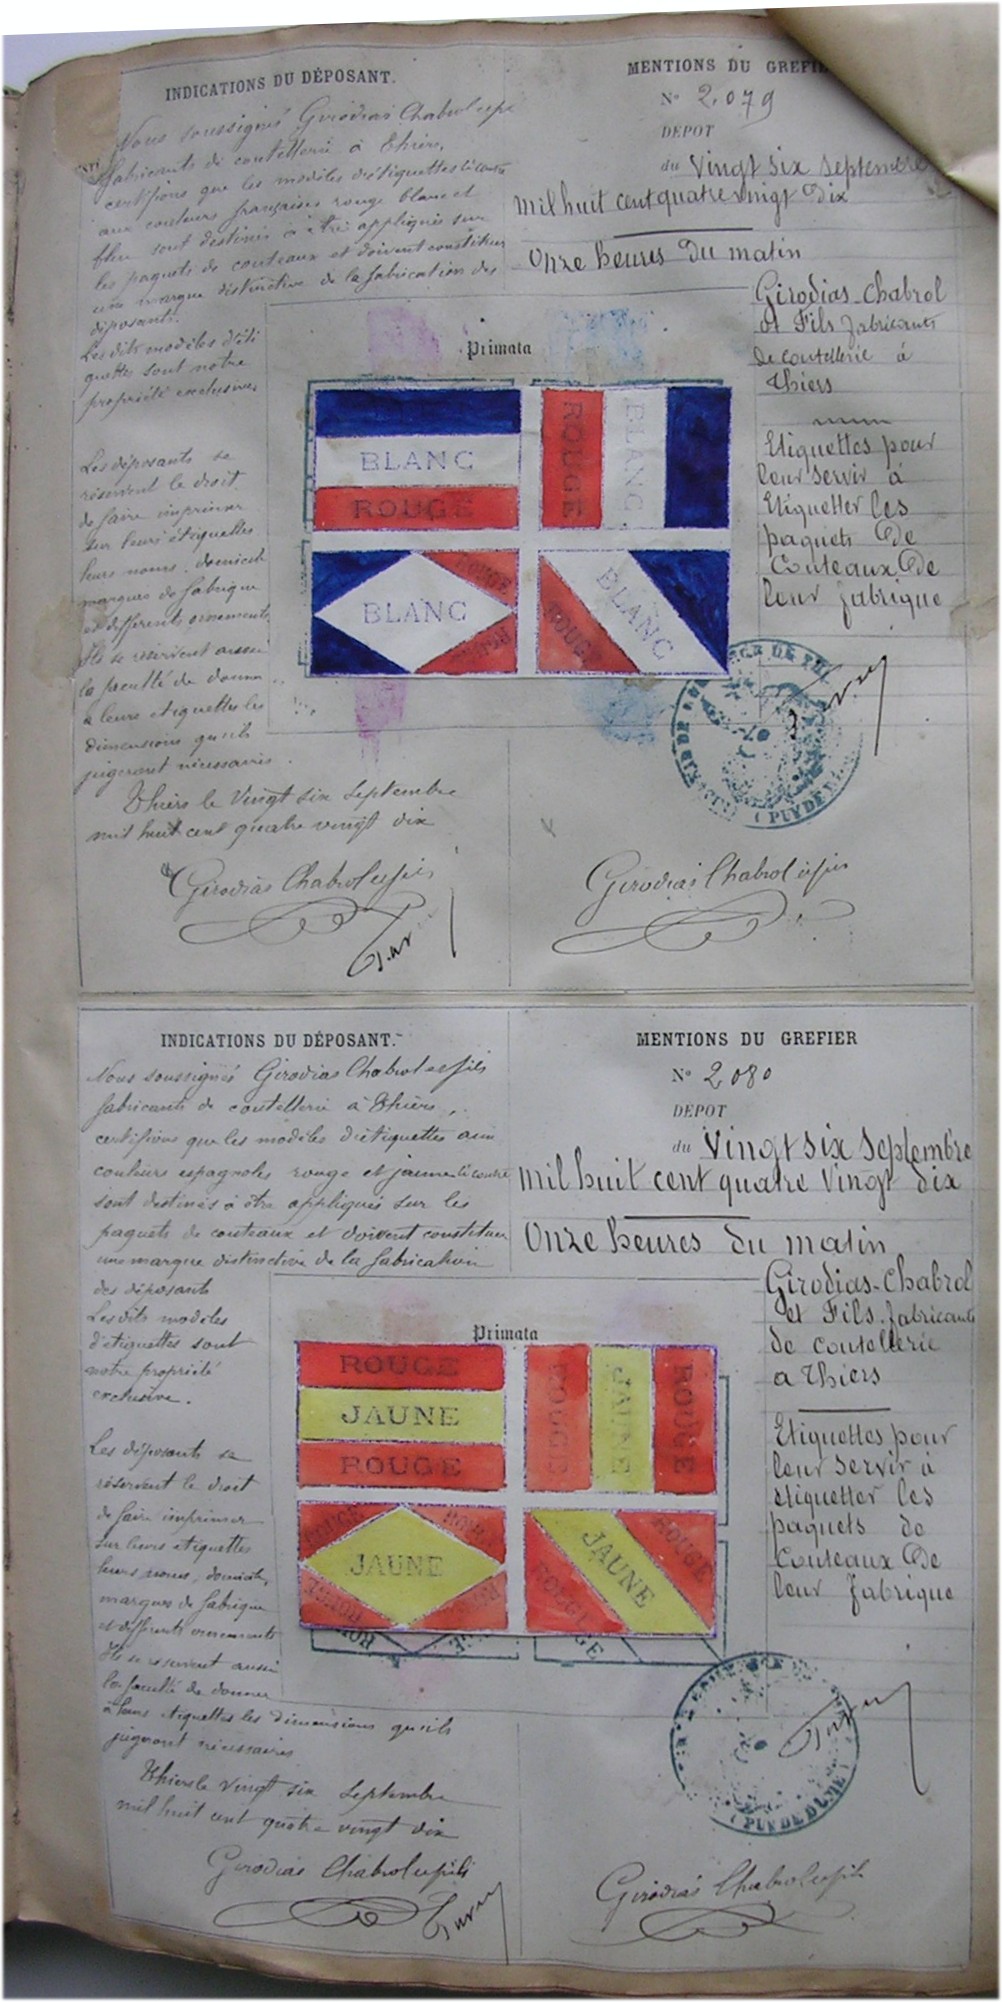 INDICATIONS DU DÉPOSANT.
Nous soussignés Girodias Chabrol et fils
fabricants de coutellerie à Thiers,
certifions que les modèles d'étiquettes ci contre
aux couleurs françaises rouge blanc et
bleu sont destinés à être appliqués sur
les paquets de couteaux et doivent constituer
une marque distinctive de la fabrication des
déposants.
Les dits modèles d'éti
quettes sont notre
propriété exclusive.
Les déposants se
réservent le droit
de faire imprimer
sur leurs étiquettes
leurs noms, domicile
marques de fabrique
et différents ornements
Ils se réservent aussi
la faculté de donner
à leurs étiquettes les
dimensions qu'ils
jugeront nécessaires.
Thiers le Vingt six Septembre
mil huit cent quatre vingt dix
Girodias Chabrol et fils
MENTIONS DU GREFIER
N° 2,079
DÉPOT
du Vingt six Septembre
Mil huit cent quatre vingt Dix
Onze heures Du matin
Girodias-Chabrol
et Fils fabricants
de coutellerie à
Thiers
Etiquettes pour
leur servir à
Etiquetter les
paquets De
Couteaux De
leur fabrique
Primata
BLANC
ROUGE
ROUGE
BLANC
BLANC
ROUGE
ROUGE
BLANC
ROUGE
(PUY DE
Girodias Chabrol et fils
INDICATIONS DU DÉPOSANT.
Nous soussignés Girodias Chabrol et fils
fabricants de coutellerie à Thiers,
certifions que les modèles d'étiquettes aux
couleurs espagnoles rouge et jaune ci contre
sont destinés à être appliqués sur les
paquets de couteaux et doivent constituer
une marque distinctive de la fabrication
des déposants
Les dits modèles
d'étiquettes sont
notre propriété
exclusive.
Les déposants se
réservent le droit
de faire imprimer
sur leurs étiquettes
leurs noms, domicile,
marques de fabrique
et différents ornements
Ils se réservent aussi
la faculté de donner
à leurs étiquettes les dimensions qu'ils
jugeront nécessaires
Thiers le Vingt six Septembre
mil huit cent quatre vingt dix
Girodias Chabrol et fils
MENTIONS DU GREFIER
N° 2,080
DÉPOT
du Vingt six Septembre
Mil huit cent quatre Vingt dix
Onze heures du matin
Girodias-Chabrol
et Fils fabricants
de coutellerie
a Thiers
Etiquettes pour
leur servir à
etiquetter les
paquets de
Couteaux De
leur fabrique
Primata
ROUGE
JAUNE
ROUGE
ROUGE
JAUNE
ROUGE
ROUGE
ROUGE
JAUNE
ROUGE
ROUGE
ROUGE
JAUNE
ROUGE
(PUY DE DÔME)
Girodias Chabrol et fils